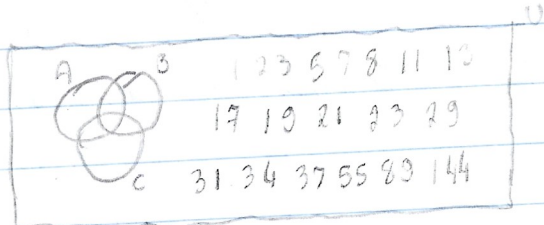 U
A B 1 2 3 5 7 8 11 13
17 19 21 23 29
C 31 34 37 55 89 144